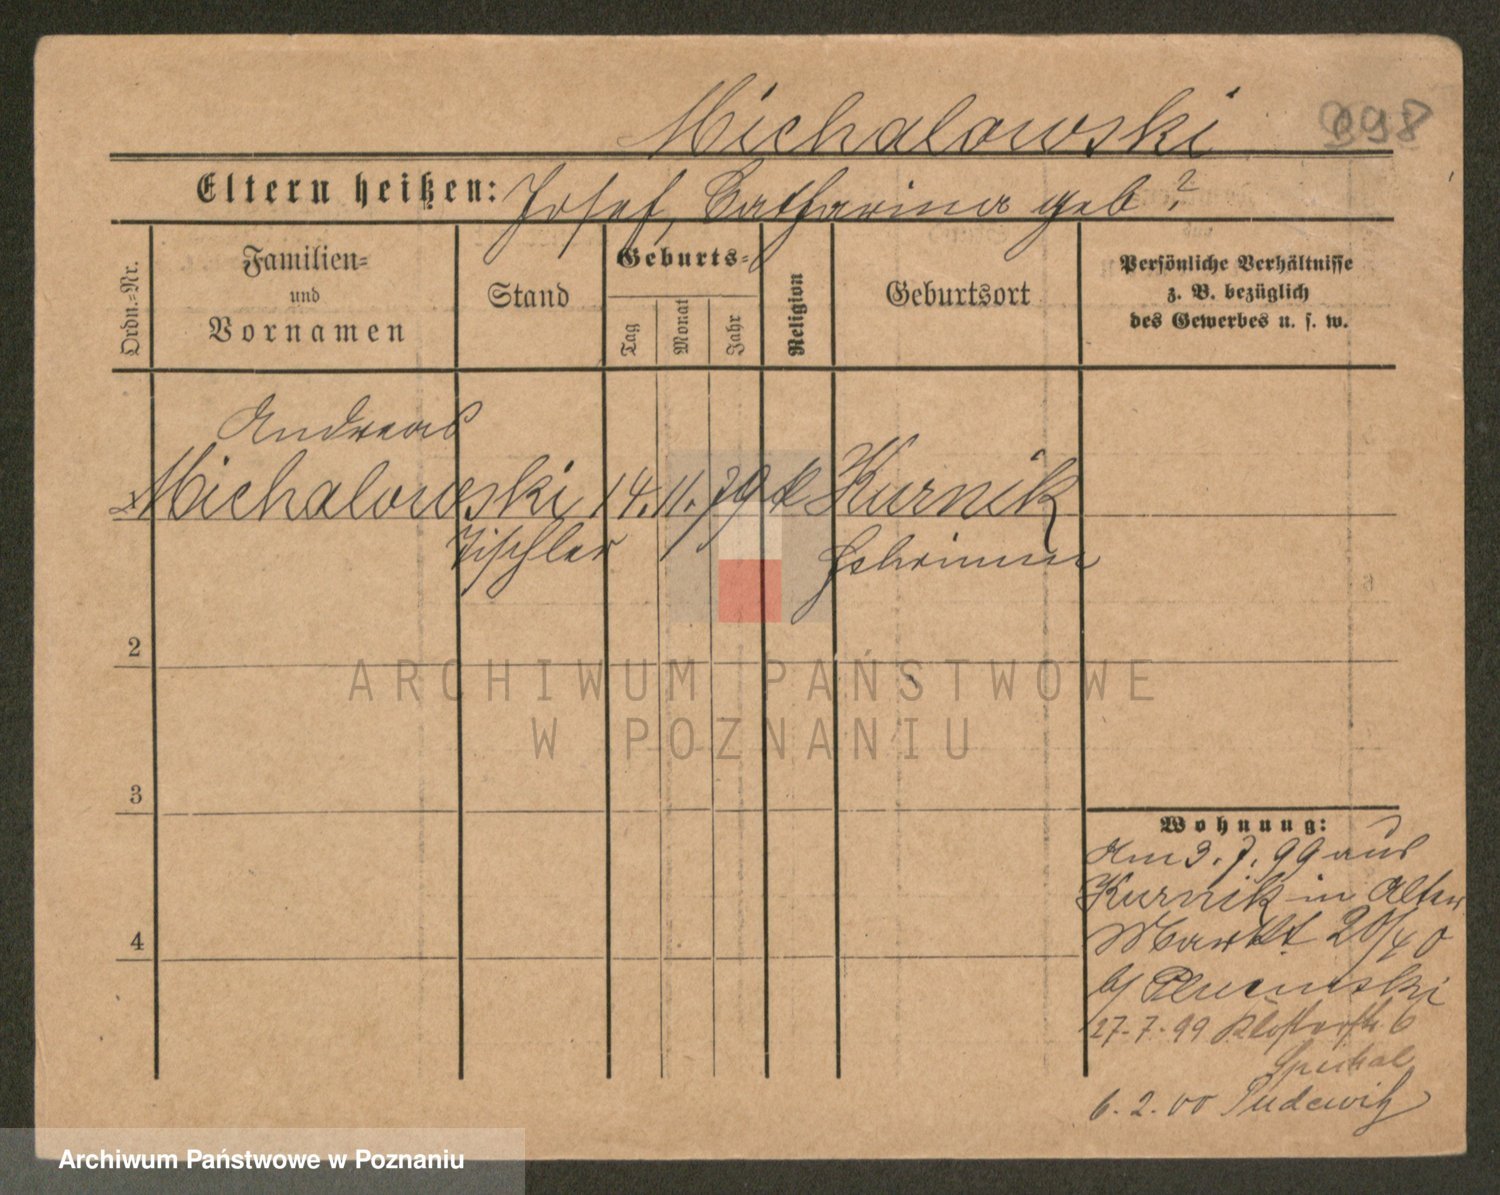 Michalowski
698
Eltern heißen: Josef, Catharina geb?
Ordn.-Nr.
Familien-
und
Vornamen
Stand
Geburts-
Tag
Monat
Jahr
Religion
Geburtsort
Persönliche Verhältnisse
z. B. bezüglich
des Gewerbes u. s. w.
Andreas
Michalowski 14. 11. 79 k Kurnik
Tischler Schrimm
2
ARCHIWUM PAŃSTWOWE
W POZNANIU
3
Wohnung:
Am 3. 7. 99 aus
Kurnik in Alter
Markt
b/ Plucinski
27. 7. 99 Klosterstr. 6
4
6. 2. 00 Pudewitz
Archiwum Państwowe w Poznaniu